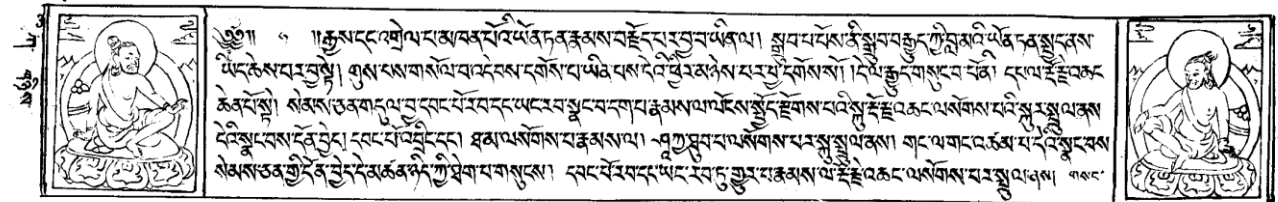 ༄༅།། ༡ །།རྒྱས་དང་འགྲེལ་པ་མཁན་པོའི་ཡོན་ཏན་རྣམས་བརྗོད་པར་བྱ་བ་ཡིན་ལ། སྒྲུབ་པ་པོས་ནི་སྒྲུབ་བརྒྱུད་ཀྱི་བླ་མའི་ཡོན་ཏན་སྨྲ་དནས་
ཡིད་ཆེས་པར་བྱ་སྟེ། གུས་པས་གསོལ་བ་འདེབས་དགོས་པ་ཡིན་པས་དེའི་ཕྱིར་མ་ཉེས་པར་བྱ་དགོས་སོ། །དེ་ལ་རྒྱུད་གསུང་བ་པོ་ནི། དཔལ་རྡོ་རྗེ་འཆང་
ཆེན་པོ་སྟེ། སེམས་ཅན་གདུལ་བྱ་དབང་པོ་རབ་དང་ཡང་རབ་སྣང་བ་དག་པ་རྣམས་ལ་ལོངས་སྤྱོད་རྫོགས་པའི་སྐུ་རྡོ་རྗེ་འཆང་ལ་སོགས་པའི་སྐུར་སྤྲུལ་ནས
དེའི་སྣང་བས་དོན་བྱེད། དབང་པོ་འབྲིང་དང་། ཐ་མ་ལ་སོགས་པ་རྣམས་ལ། ཤཱཀྱ་ཐུབ་པ་ལ་སོགས་པར་སྐུ་སྤྲུལ་ནས། གང་ལ་གང་འཚམ་པ་དེའི་སྣང་བས
སེམས་ཅན་གྱི་དོན་བྱེད་དེ་མཚན་ཉིད་ཀྱི་ཐེག་པ་གསུངས། དབང་པོ་རབ་དང་ཡང་རབ་ཏུ་གྱུར་པ་རྣམས་ལ་རྡོ་རྗེ་འཆང་ལ་སོགས་པར་སྤྲུལ་ནས། གསང་